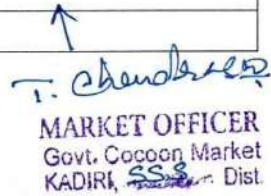 T. Chandersekhar
MARKET OFFICER
Govt. Cocoon Market
KADIRI, SSS Dist.